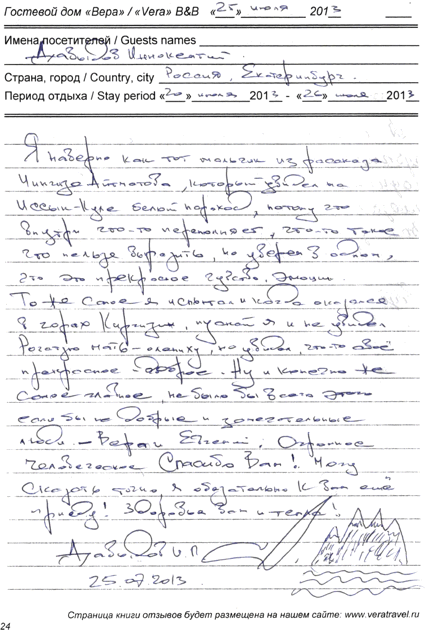 Гостевой дом «Вера» / «Vera» B&B «25» июля 2013
Имена посетителей / Guests names
Давыдов Иннокентий
Страна, город / Country, city Россия, Екатеринбург.
Период отдыха / Stay period «20» июля 2013 - «26» июля 2013
Я наверно как тот мальчик из рассказа
Чингиза Айтматова, который увидел на
Иссык-Куле белый пароход, потому что
внутри что-то переполняет, что-то такое
что нельзя выразить, но уверен в одном,
что это прекрасное чувство, эмоции.
То же самое я испытал и когда оказался
в горах Киргизии, пускай я и не увидел
Рогатую мать-олениху, но увидел, что-то своё
прекрасное - доброе. Ну и конечно же
самое главное, не было бы всего этого
если бы не добрые и замечательные
люди - Вера и Евгений, Огромное
Человеческое Спасибо Вам! Могу
Сказать точно, я обязательно к Вам ещё
приеду! Здоровья Вам и тепла!
Давыдов И.П.
25.07.2013
Страница книги отзывов будет размещена на нашем сайте: www.veratravel.ru
24